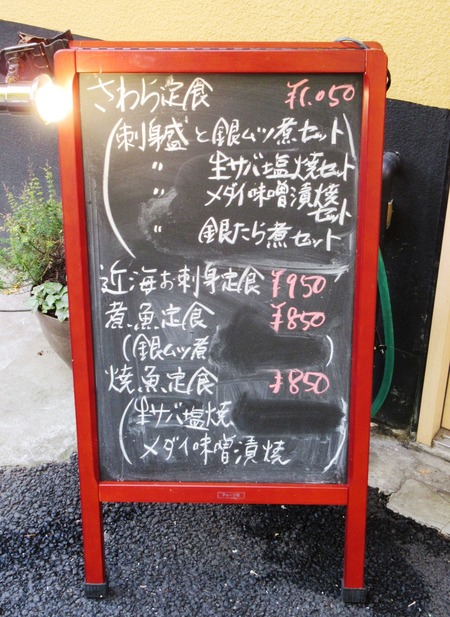 さわら定食 ¥1.050
(刺身盛と銀ムツ煮セット
〃 生サバ塩焼セット
〃 メダイ味噌漬焼
セット
〃 銀たら煮セット)
近海お刺身定食 ¥950
煮魚定食 ¥850
(銀ムツ煮 )
焼魚定食 ¥850
(生サバ塩焼
メダイ味噌漬焼 )